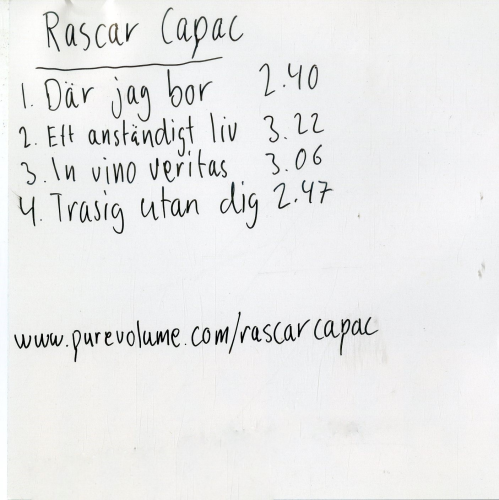 Rascar Capac
1. Där jag bor 2.40
2. Ett anständigt liv 3.22
3. In vino veritas 3.06
4. Trasig utan dig 2.47
www.purevolume.com/rascarcapac